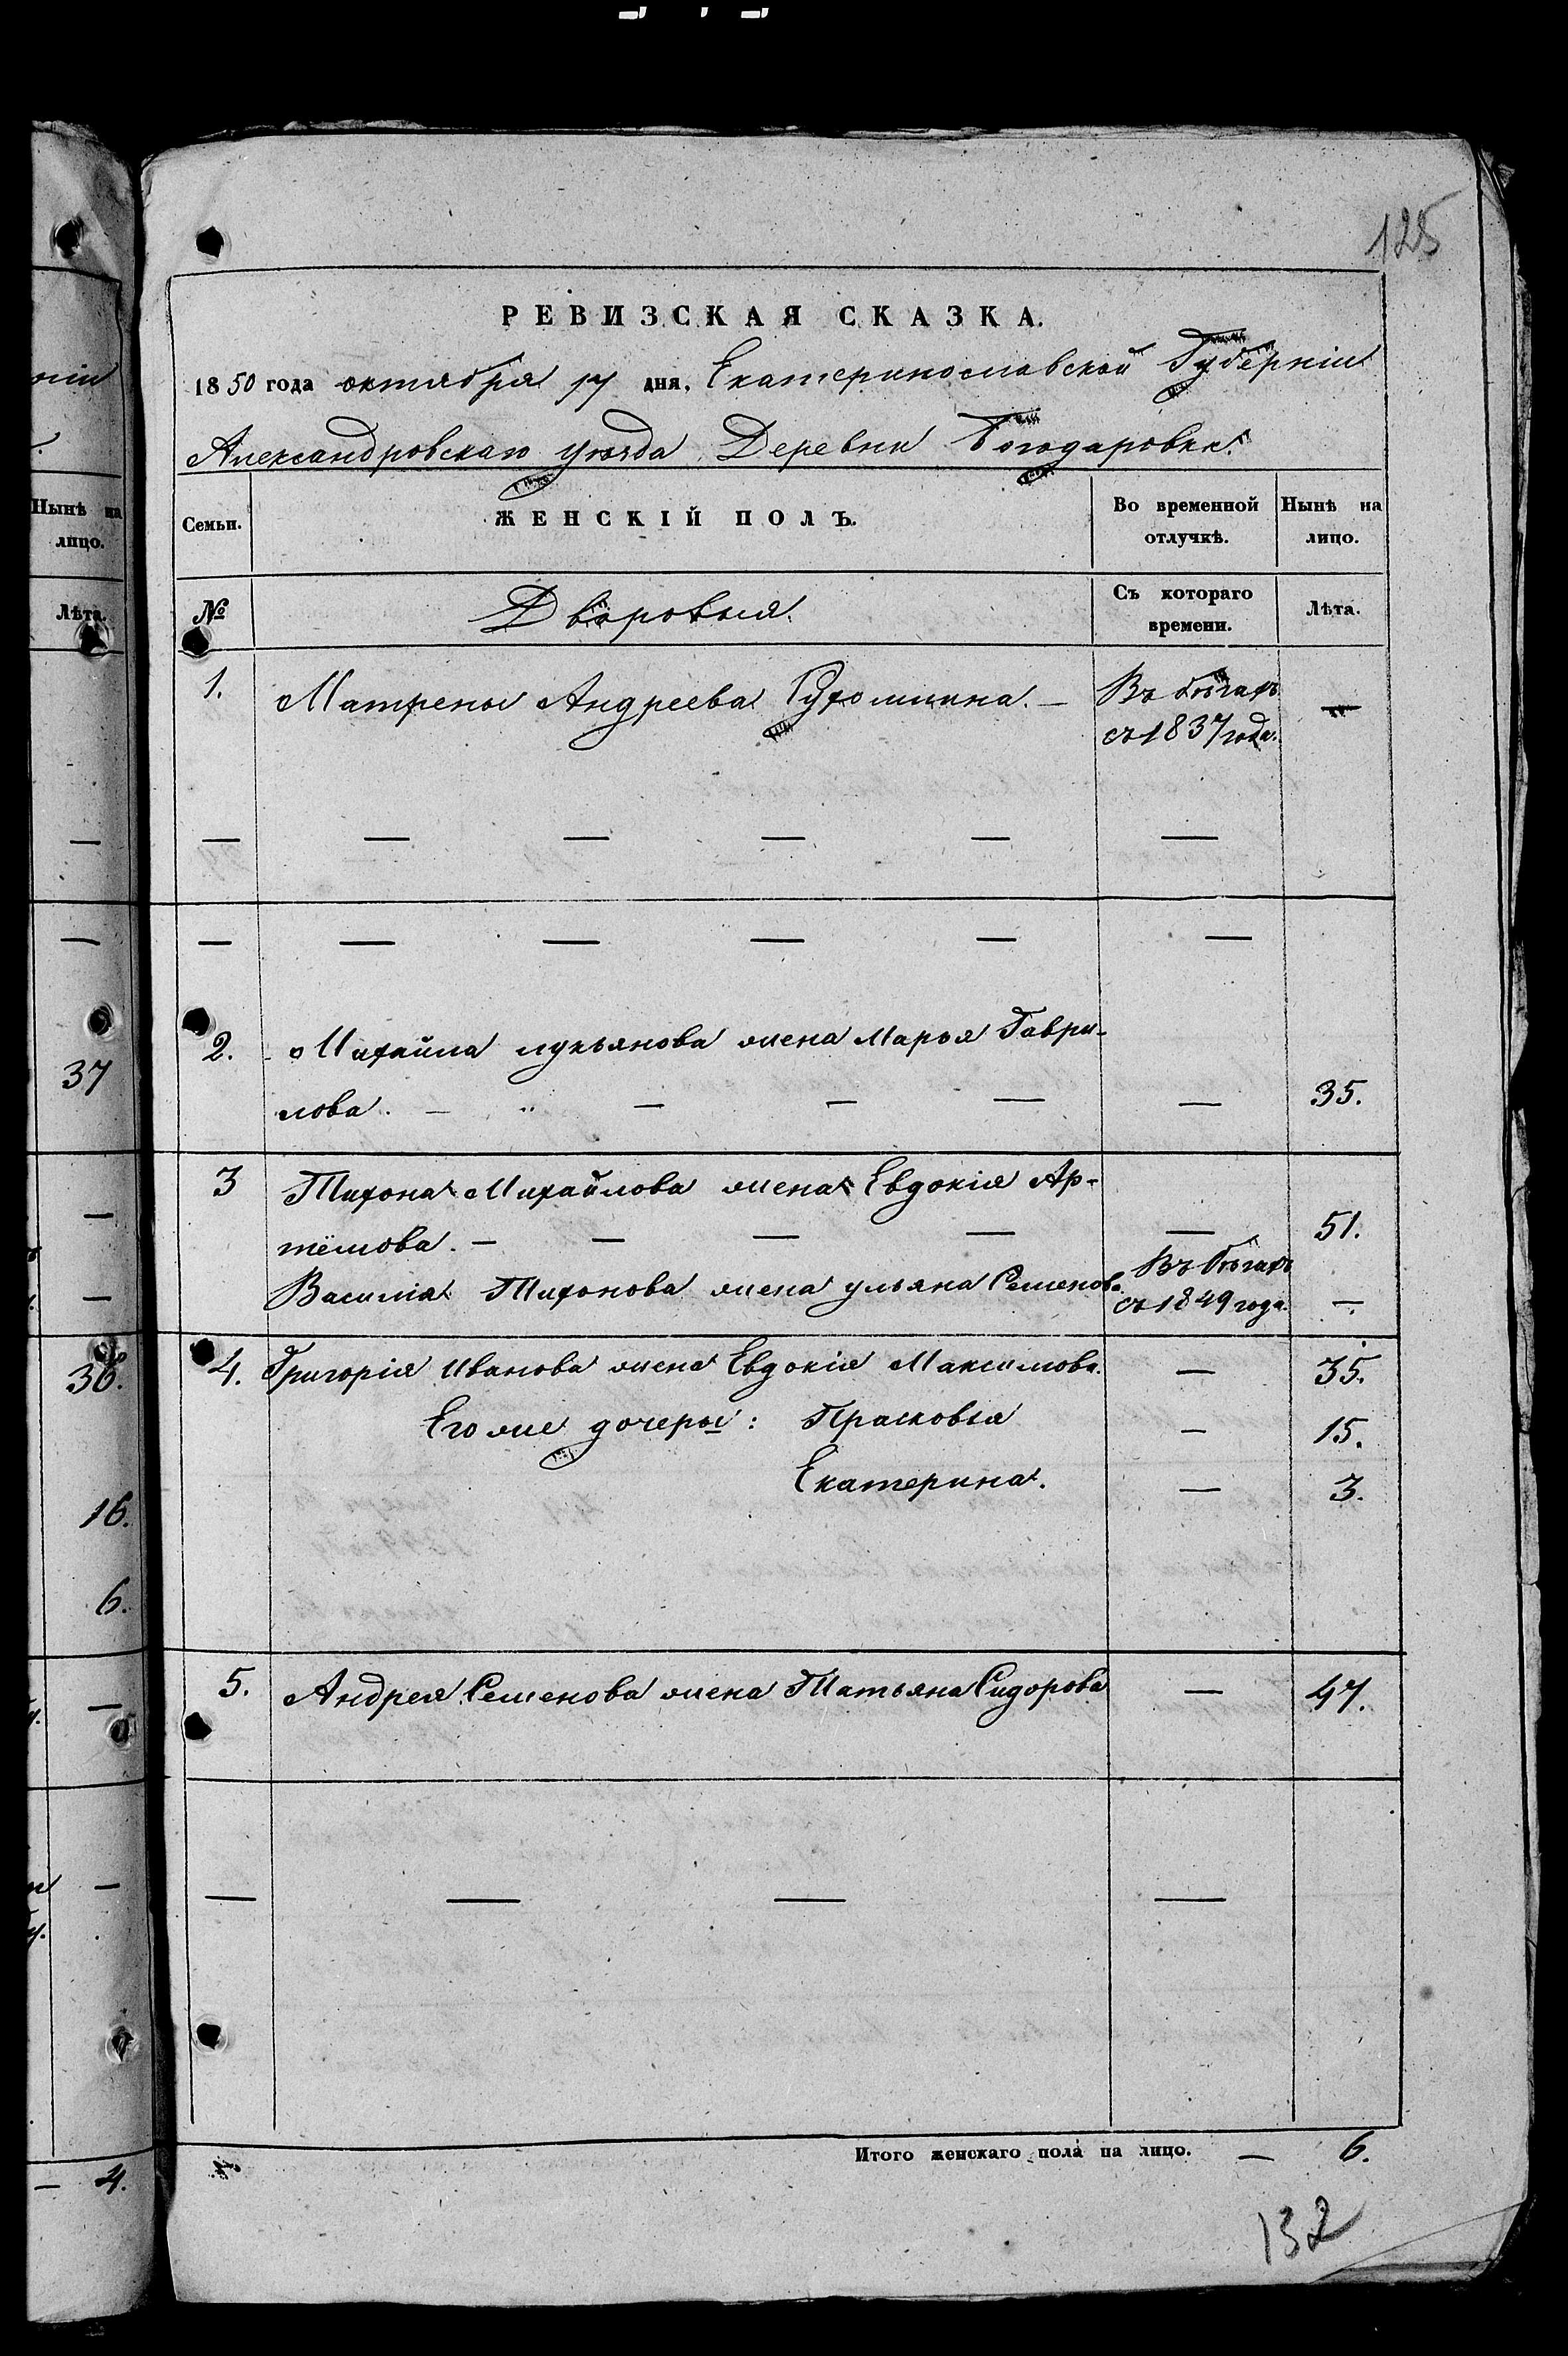 125
РЕВИЗСКАЯ СКАЗКА.
1850 года октября 17 дня, Екатеринославской Губерніи
Александровскаго уѣзда Деревни Богодаровки.
Нынѣ на лицо.
Лѣта.
37
36.
16.
6.
4.
Семьи.
ЖЕНСКІЙ ПОЛЪ.
Во временной отлучкѣ.
Нынѣ на лицо.
№
Дворовыя.
Съ котораго времени.
Лѣта.
1. Матрены Андреева — Въ бѣгахъ —
съ 1837 года.
— — — — — —
— — — — — —
2. Михайла Лукьянова жена Марья Гаври-
лова. — „ — — — — 35.
3 Тихона Михайлова жена Евдокія Ар-
тёмова. — — — — — 51.
Василія Тихонова жена Ульяна Семенова Въ бѣгахъ
съ 1849 года. —
4. Григорія Иванова жена Евдокія Максимова. — 35.
Его же дочеры: Прасковья — 15.
Екатерина. — 3.
5. Андрея Семенова жена Татьяна Сидорова — 47.
— — — —
Итого женскаго пола на лицо. — 6.
132